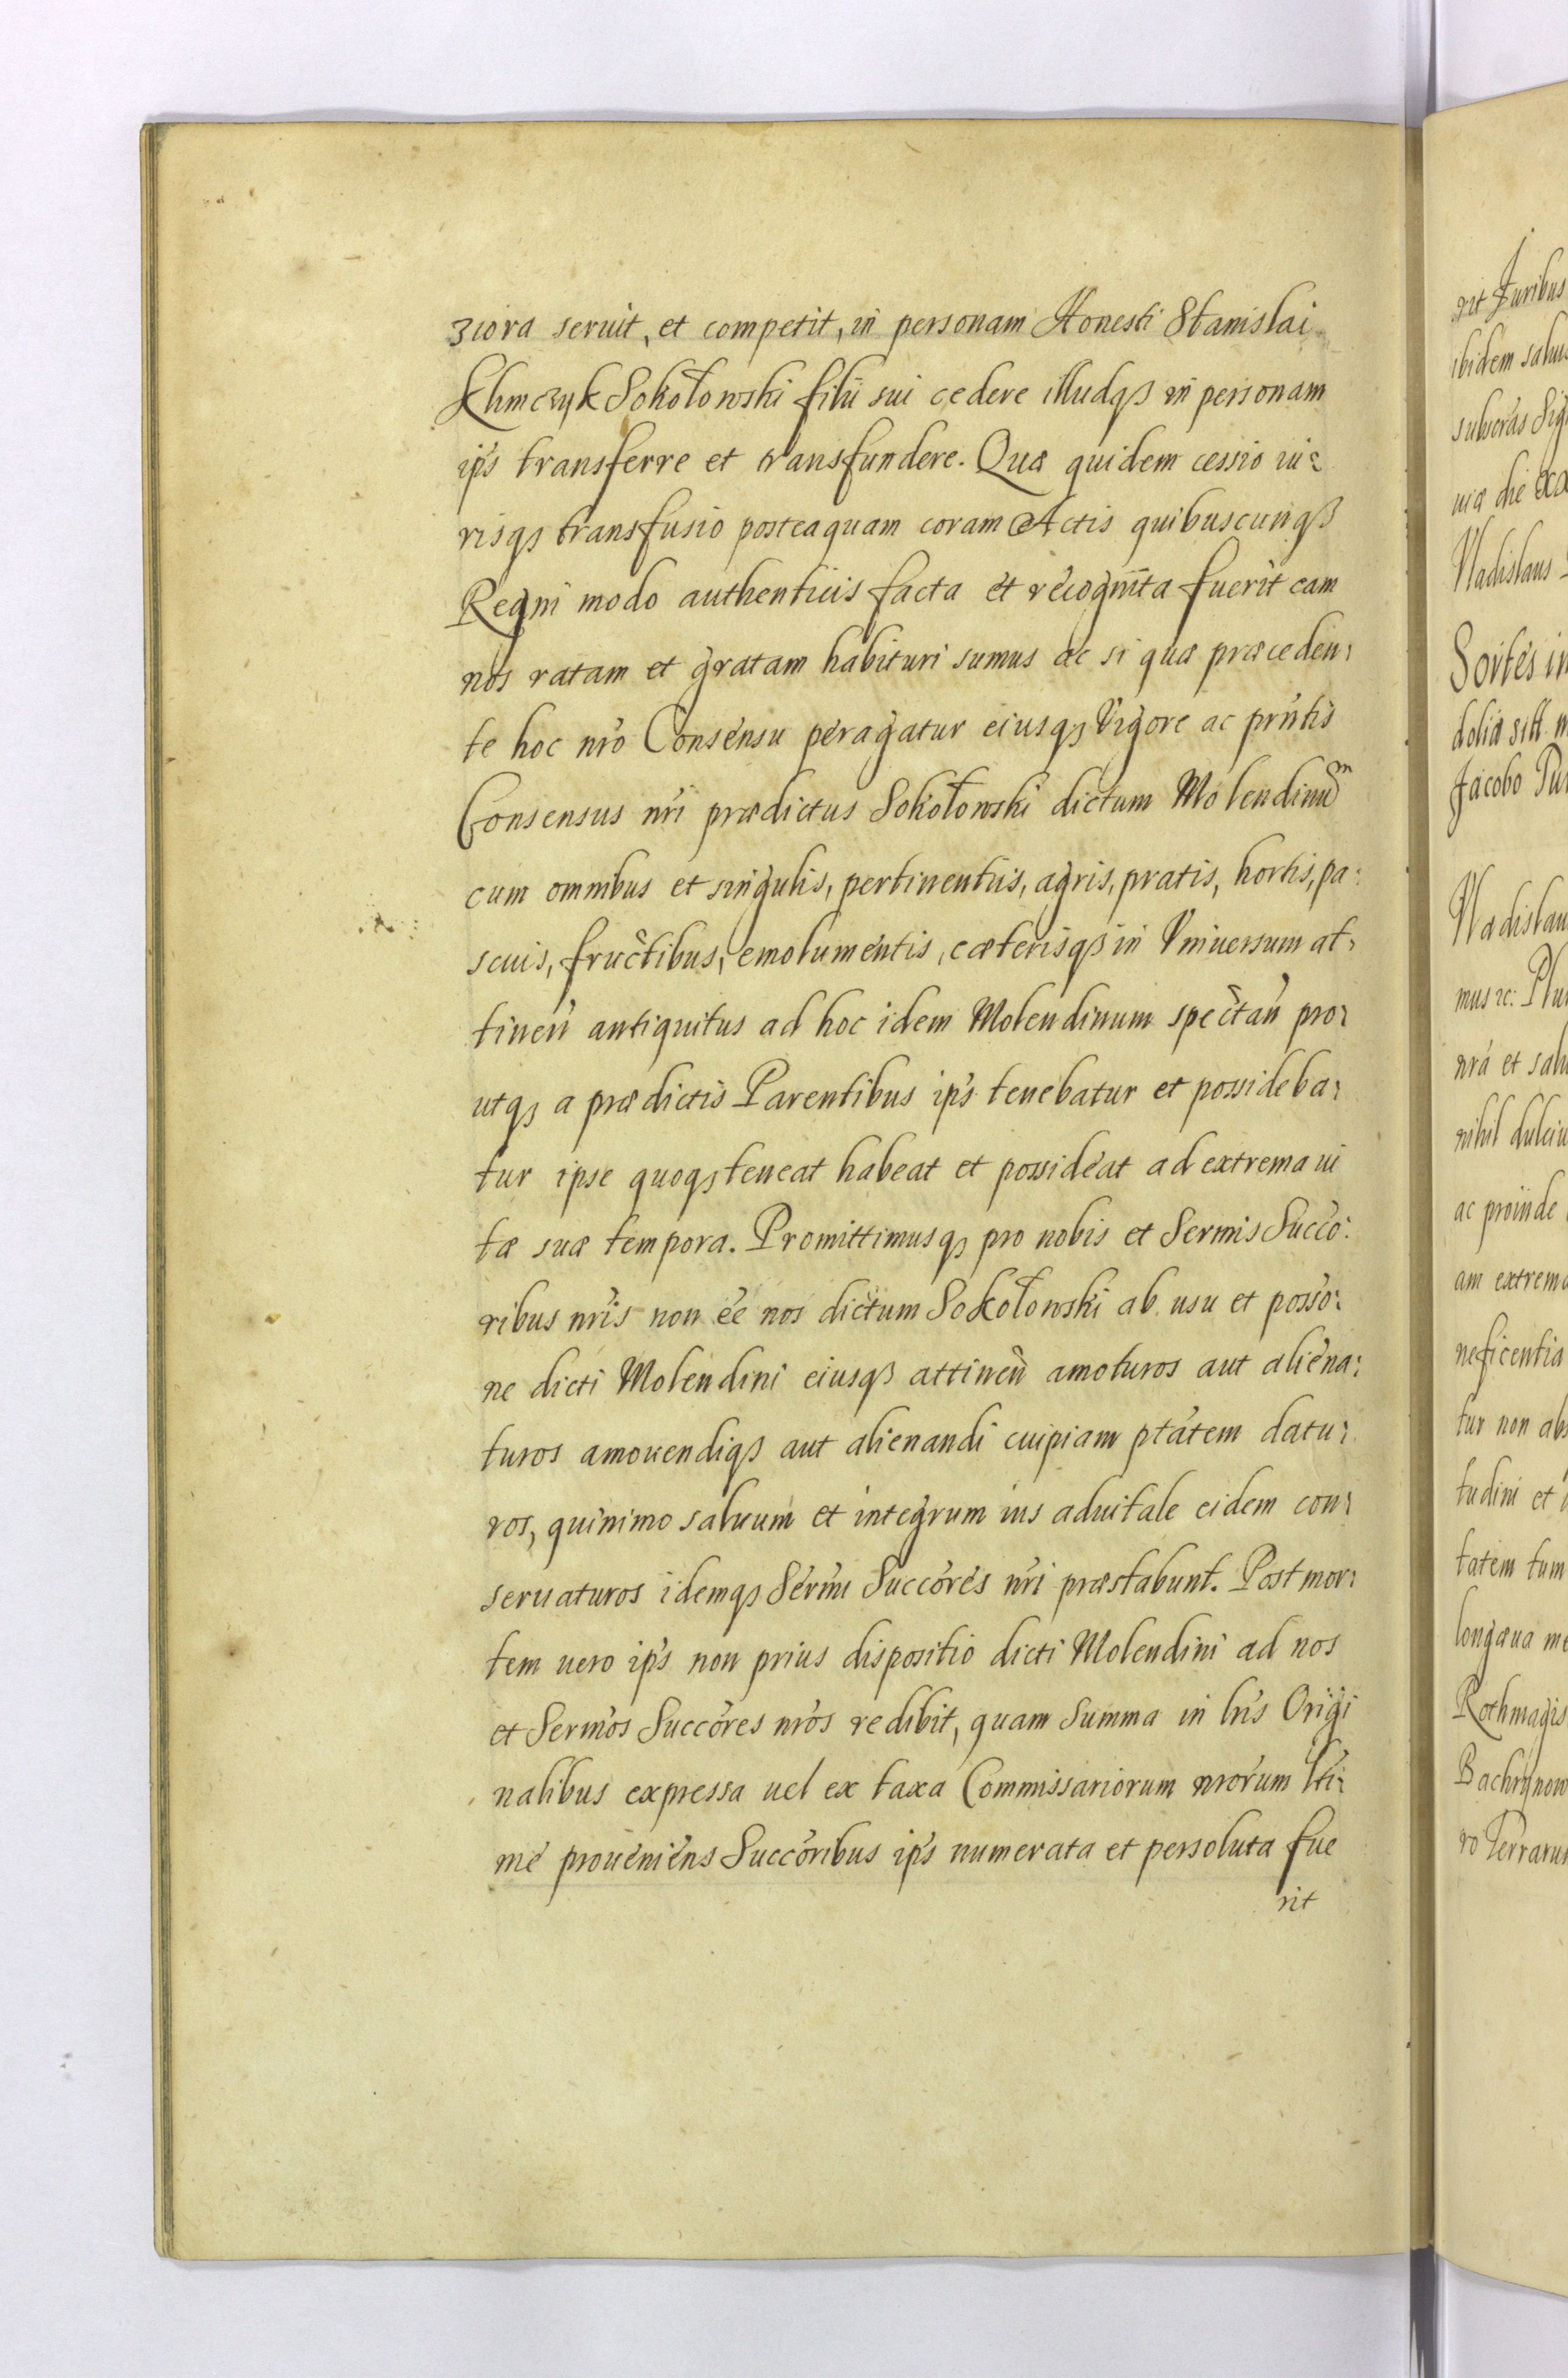 ziora seruit, et competit, in personam Honesti Stanislai
Klimczyk Sokołowski filii sui cedere illudqȝ in personam
ip̃s transferre et transfundere. Quæ quidem cessio iu:
risqȝ transfusio posteaquam coram Actis quibuscunqȝ
Regni modo authenticis facta et recognita fuerit eam
nos ratam et gratam habituri sumus ac si quæ præceden:
te hoc nr̃o Consensu peragatur eiusqȝ Vigore ac pr̃ntis
Consensus nr̃i prædictus Sokołowski dictum Molendinum
cum omnibus et singulis, pertinentiis, agris, pratis, hortis, pa:
scuis, fructibus, emolumentis, cæterisqȝ in Vniuersum at:
tineñ antiquitus ad hoc idem Molendinum spectañ pro:
utqȝ a prædictis Parentibus ip̃s tenebatur et possideba:
tur ipse quoqȝ teneat habeat et possideat ad extrema ui
tæ suæ tempora. Promittimusqȝ pro nobis et Sermis Succo:
ribus nr̃is non ee̓ nos dictum Sokołowski ab usu et posso:
ne dicti Molendini eiusqȝ attineñ amoturos aut aliena:
turos amouendiqȝ aut alienandi cuipiam ptãtem datu:
ros, quinimo saluum et integrum ius aduitale eidem con:
seruaturos idemqȝ Sermi Succores nr̃i præstabunt. Post mor:
tem uero ip̃s non prius dispositio dicti Molendini ad nos
et Sermos Succores nr̃os redibit, quam Summa in lr̃is Origi
nalibus expressa uel ex taxa Commissariorum nr̃orum lti:
me proueniens Succoribus ip̃s numerata et persoluta fue
rit
rit Juribus
ibidem salu
nia die
Vladislaus
Sortes in
dolia sitt
Jacobo
Vladislau
mus ꝛc:
nr̃a et
nihil dulciu
ac proinde
am extrem
neficentia
tur non ab
tudini et
tatem tum
longæua me
Rothmagis
Bachrynow
ro Terraru